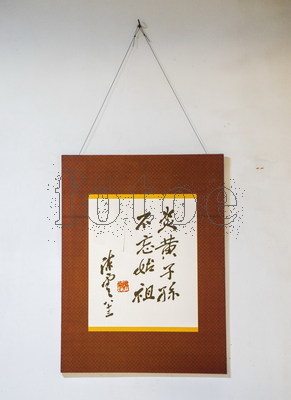 炎黄子孫
不忘始祖
fotoe